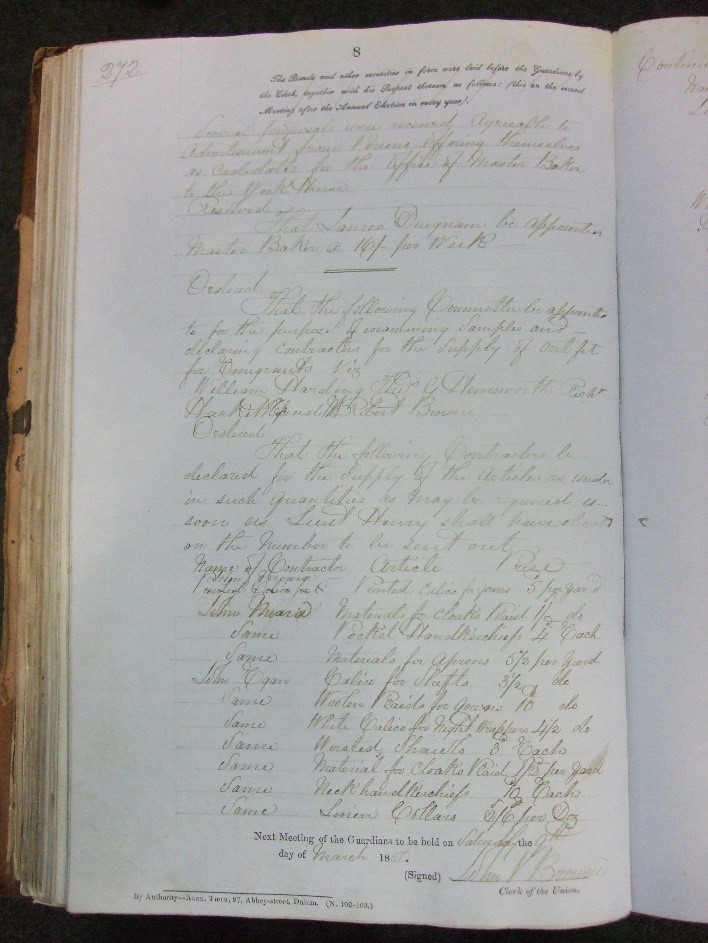 272
8
The Bonds and other securities in force were laid before the Guardians by
the Clerk, together with his Report thereon, as follows:—(this on the second
Meeting after the Annual Election in every year).
Several proposals were received Agreeable to
Advertisement from Persons offering themselves
as Candidates for the office of Master Baker
to the Work House
Resolved
That James Duignam be appointed
Master Baker @ 16/- per Week
Ordered
That the following Committee be appointed
to for the purpose of examining Samples and
declaring Contractors for the Supply of Out fit
for Emigrants Viz
William Harding Thos G Hemsworth Richd
Hackett Robert Browne
Ordered
That the following Contractors be
declared for the Supply of the Articles as under
in such quantities as may be required as
soon as Lieut Henry shall have
on the Number to be sent out
Name of Contractor Article Price
Printed Calico for gowns 5 per yard
John Meara Materials for Cloaks Plaid 1/2 do
Same Pocket Handkerchiefs 4 Each
Same Materials for Aprons 5/2 per Yard
John Egan Calico for Shifts 3/2 do
Same Woolen Plaids for gowns 10 do
Same White Calico for Night Wrappers 4/2 do
Same Worsted Shawls 3 Each
Same Material for Cloaks Plaid per Yard
Same Neck handkerchiefs Each
Same Linen Collars 3/6 per Doz
Next Meeting of the Guardians to be held on Saturday the 9th
day of March 18
(Signed) John
Clerk of the Union.
By Authority—Alex. Thom, 87, Abbey-street, Dublin. (N. 102-103.)
Continu